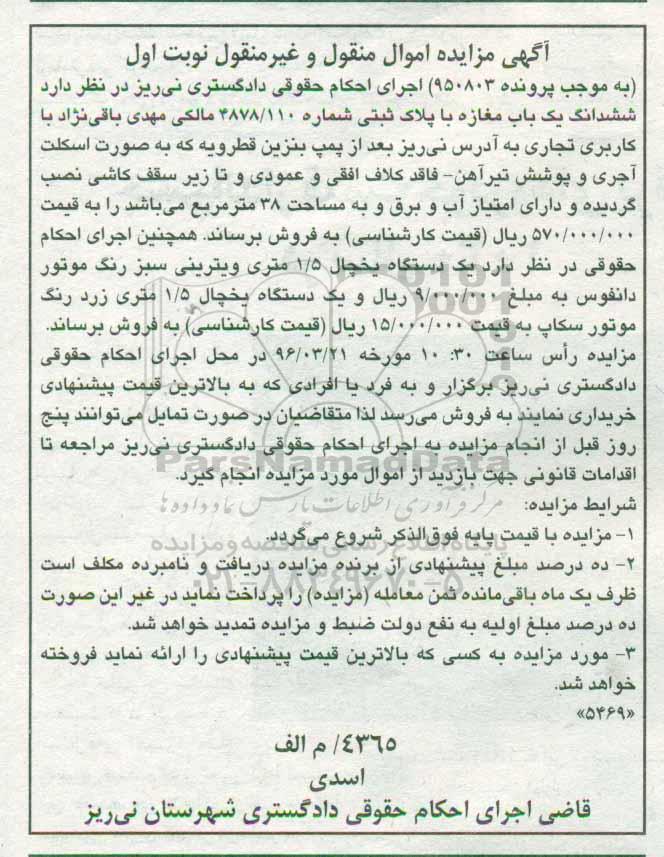 آگهی مزایده اموال منقول و غیرمنقول نوبت اول
(به موجب پرونده ۹۵۰۸۰۳) اجرای احکام حقوقی دادگستری نی‌ریز در نظر دارد
ششدانگ یک باب مغازه با پلاک ثبتی شماره ۴۸۷۸/۱۱۰ مالکی مهدی باقی‌نژاد با
کاربری تجاری به آدرس نی‌ریز بعد از پمپ بنزین قطرویه که به صورت اسکلت
آجری و پوشش تیرآهن- فاقد کلاف افقی و عمودی و تا زیر سقف کاشی نصب
گردیده و دارای امتیاز آب و برق و به مساحت ۳۸ مترمربع می‌باشد را به قیمت
۵۷۰/۰۰۰/۰۰۰ ریال (قیمت کارشناسی) به فروش برساند. همچنین اجرای احکام
حقوقی در نظر دارد یک دستگاه یخچال ۱/۵ متری ویترینی سبز رنگ موتور
دانفوس به مبلغ ۹/۰۰۰/۰۰۰ ریال و یک دستگاه یخچال ۱/۵ متری زرد رنگ
موتور سکاپ به قیمت ۱۵/۰۰۰/۰۰۰ ریال (قیمت کارشناسی) به فروش برساند.
مزایده رأس ساعت ۳۰: ۱۰ مورخه ۹۶/۰۳/۲۱ در محل اجرای احکام حقوقی
دادگستری نی‌ریز برگزار و به فرد یا افرادی که به بالاترین قیمت پیشنهادی
خریداری نمایند به فروش می‌رسد لذا متقاضیان در صورت تمایل می‌توانند پنج
روز قبل از انجام مزایده به اجرای احکام حقوقی دادگستری نی‌ریز مراجعه تا
اقدامات قانونی جهت بازدید از اموال مورد مزایده انجام گیرد.
ParsNamadData
شرایط مزایده:
مرکز فرآوری اطلاعات پارس نماد داده‌ها
۱- مزایده با قیمت پایه فوق‌الذکر شروع می‌گردد.
پایگاه اطلاع رسانی مناقصه و مزایده
۲- ده درصد مبلغ پیشنهادی از برنده مزایده دریافت و نامبرده مکلف است
ظرف یک ماه باقی‌مانده ثمن معامله (مزایده) را پرداخت نماید در غیر این صورت
۰۲۱-۸۸۳۴۹۶۷۰-۵
ده درصد مبلغ اولیه به نفع دولت ضبط و مزایده تمدید خواهد شد.
۳- مورد مزایده به کسی که بالاترین قیمت پیشنهادی را ارائه نماید فروخته
خواهد شد.
«۵۴۶۹»
۴۳۶۵/ م الف
اسدی
قاضی اجرای احکام حقوقی دادگستری شهرستان نی‌ریز